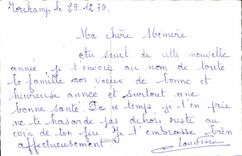 Torchamp, le 29.12.70.
Ma chère Mémère
Au seuil de cette nouvelle
année je t'envoie au nom de toute
la famille nos voeux de bonne et
heureuse année et surtout une
bonne santé. De ce temps, je t'en prie
ne te hasarde pas dehors reste au
coin de ton feu. Je t'embrasse bien
affectueusement